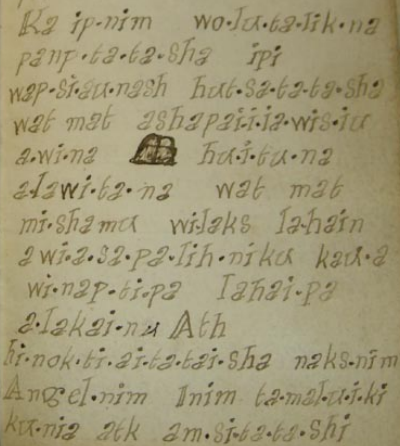 Ka ip·nim wo·lu·ta·lik·na
panp·ta·ta·sha ipi
wap·si·au·nash hut·sa·ta·ta·sha
wat mat ashapaiiia·wis·iu
a·wi·na hu·i·tu·na
a·lawi·ta·na wat mat
mi·shamu wi·laks la·hain
awi·a·sa·pa·lih·niku kau·a
wi·nap·ti·pa lahai·pa
a·lakai·nu Ath
hi·nok·ti·ai·ta·tai·sha naks·nim
Angel·nim Inim ta·malu·i·ki
ku·nia atk am·si·ta·ta·shi